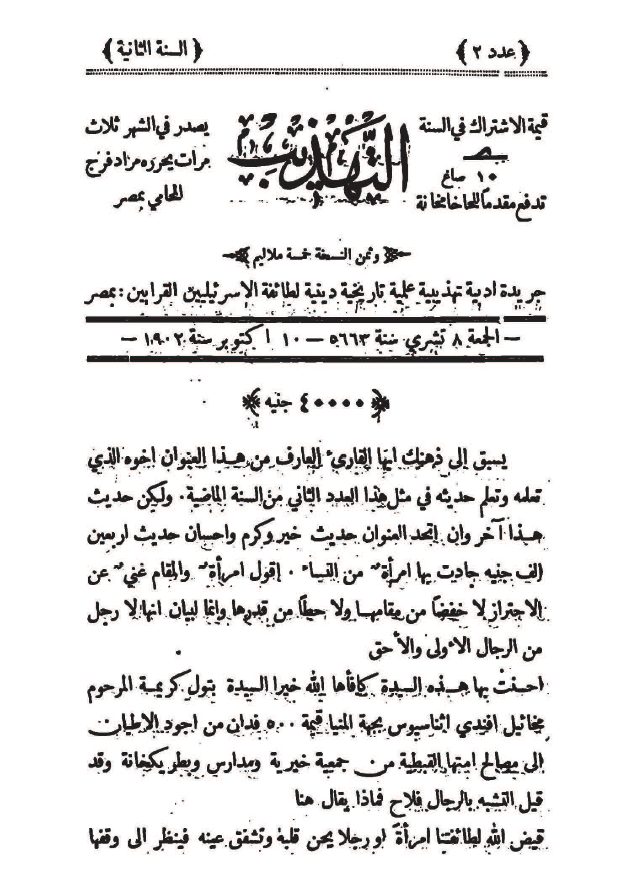 ﴿ عدد ٢ ﴾
﴿ السنة الثانية ﴾
قيمة الاشتراك في السنة
١٠ صاغ
تدفع مقدماً للحاخامخانة
التهذيب
يصدر في الشهر ثلاث
مرات يحرره مراد فرج
المحامي بمصر
وثمن النسخة خمسة ملاليم
جريدة ادبية تهذيبية علمية تاريخية دينية لطائفة الاسرئيليين القرايين : بمصر
— الجمعة ٨ تشري سنة ٥٦٦٣ — ١٠ اكتوبر سنة ١٩٠٢ —
٤٠٠٠٠ جنيه
يسبق إلى ذهنك ايها القارئ العارف من هذا العنوان اخوه الذي
تعلمه وتعلم حديثه في مثل هذا العدد الثاني من السنة الماضية . ولكن حديث
هذا آخر وان إتحد العنوان حديث خير وكرم واحسان حديث اربعين
الف جنيه جادت بها امرأة من النساء . إقول امرأة والمقام غني عن
الاحتراز لا خفضًا من مقامها ولا حطًا من قدرها وانما لبيان انها لا رجل
من الرجال الاولى والأحق
احسنت بها هذه السيدة كافأها الله خيرا السيدة بتول كريمة المرحوم
مخائيل افندي اثناسيوس بجهة المنيا قيمة ٥٠٠ فدان من اجود الاطيان
الى مصالح امتها القبطية من جمعية خيرية ومدارس وبطريكخانة وقد
قيل التشبه بالرجال فلاح فماذا يقال هنا
قيض الله لطائفتنا امرأة او رجلا يحن قلبه وتشفق عينه فينظر الى وقفها